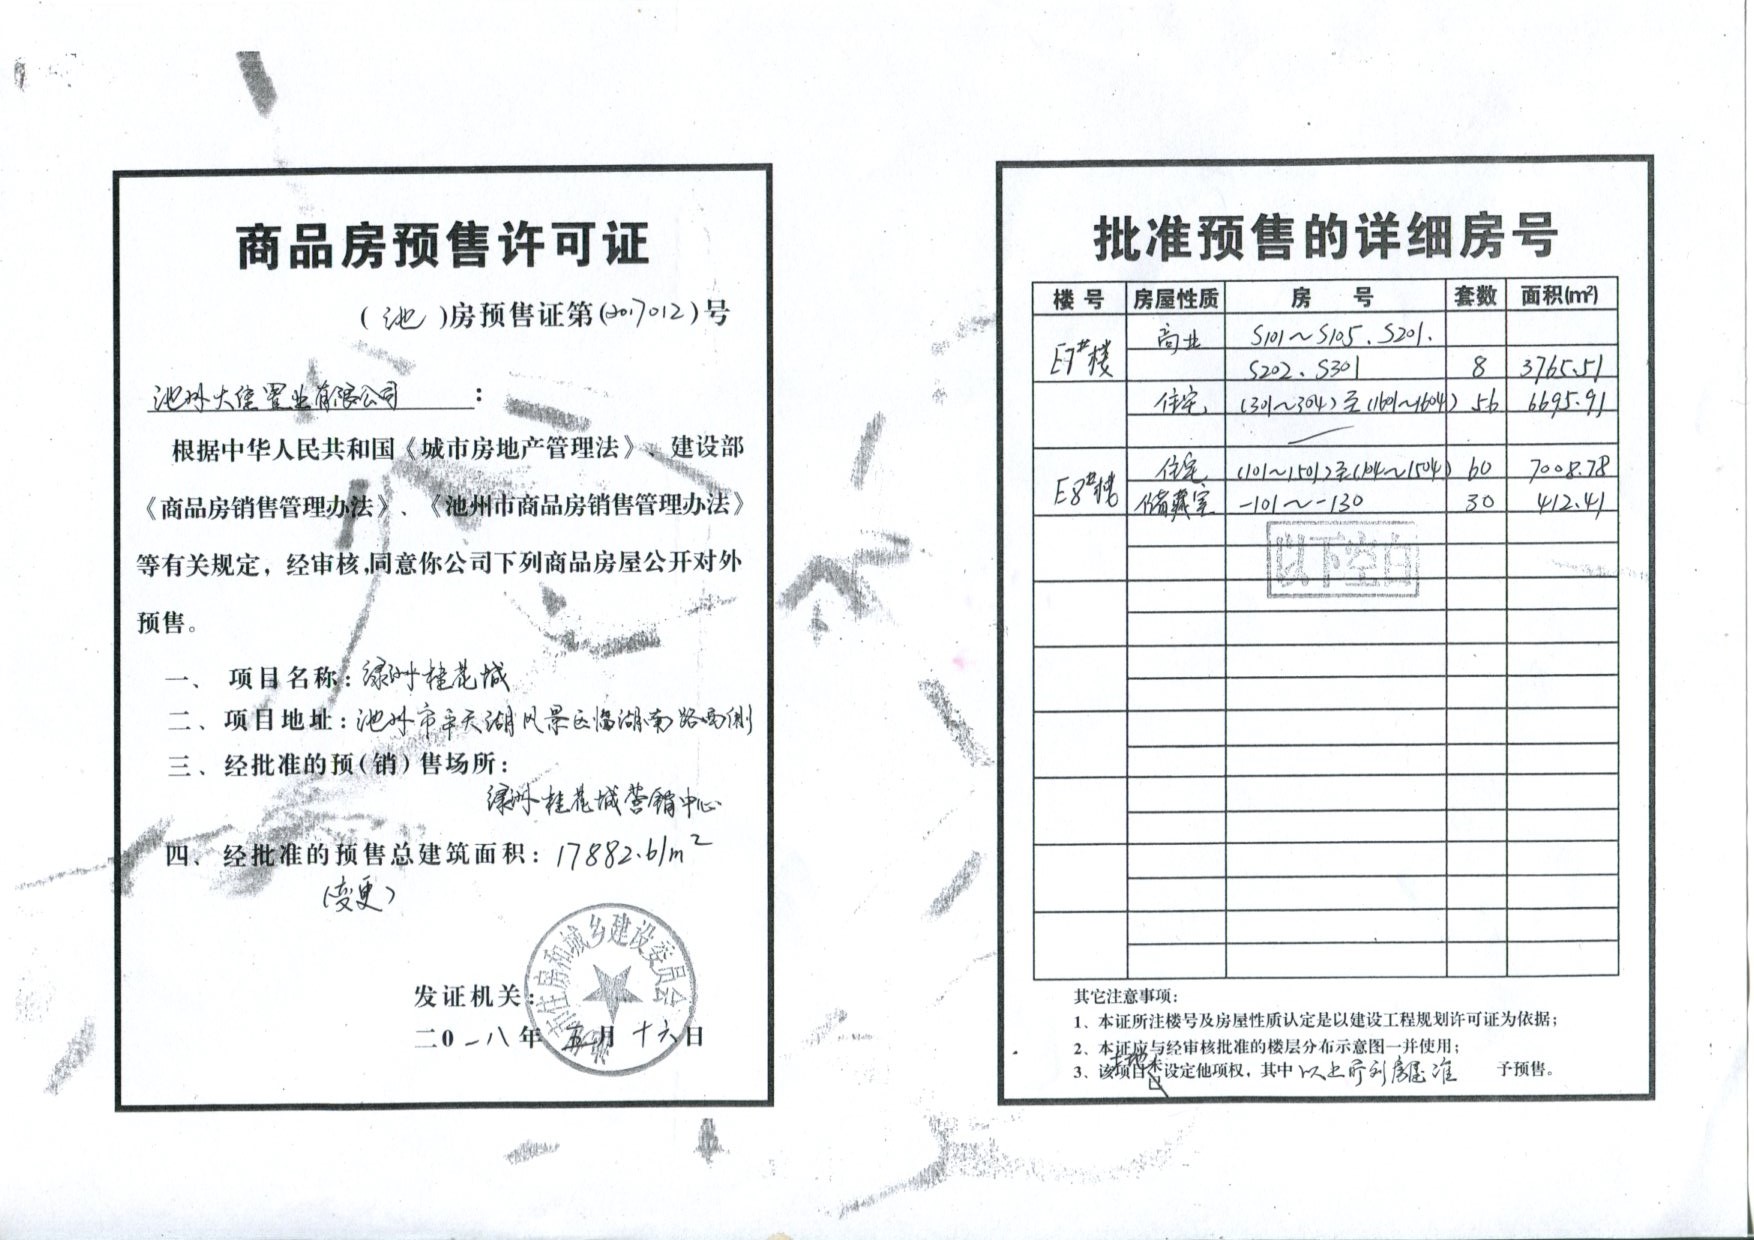 商品房预售许可证
(池)房预售证第(2017012)号
池州大信置业有限公司：
根据中华人民共和国《城市房地产管理法》、建设部
《商品房销售管理办法》、《池州市商品房销售管理办法》
等有关规定，经审核,同意你公司下列商品房屋公开对外
预售。
一、项目名称：绿洲桂花城
二、项目地址：池州市平天湖风景区临湖南路西侧
三、经批准的预(销)售场所：
绿洲桂花城营销中心
四、经批准的预售总建筑面积：17882.61m²
(变更)
发证机关：
市住房和城乡建设委员会
二0一八年五月十六日
批准预售的详细房号
楼号 房屋性质 房号 套数 面积(m²)
E7#楼 商业 S101～S105、S201、
S202、S301 8 3765.51
住宅 (301～304)至(1601～1604) 56 6695.91
E8#楼 住宅 (101～1501)至(104～1504) 60 7008.78
储藏室 -101～-130 30 412.41
以下空白
其它注意事项：
1、本证所注楼号及房屋性质认定是以建设工程规划许可证为依据；
2、本证应与经审核批准的楼层分布示意图一并使用；
3、该项目土地未设定他项权，其中以上所列房屋准予预售。